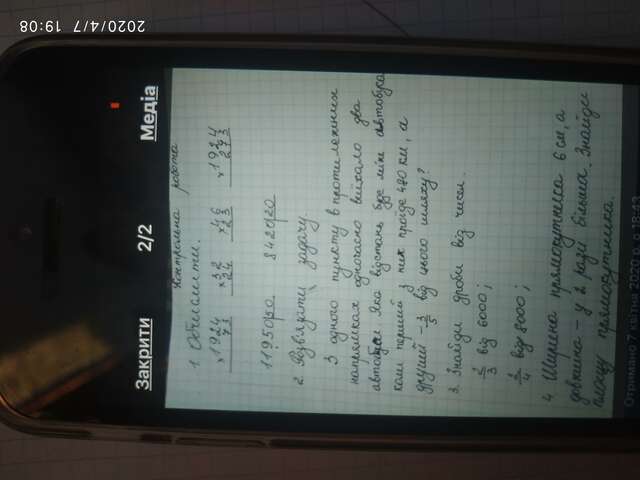 2020/4/7 19:08
Закрити 2/2 Медіа
Контрольна робота
1. Обчислити.
×1924 ×32 ×46 ×1924
73 24 23 273
11950|50 8420|20
2. Розв'язати задачу.
З одного пункту в протилежних
напрямках одночасно виїхало два
автобуси. Яка відстань буде між автобуса
ками перший з них пройде 480 км, а
другий - 3/5 від цього шляху?
3. Знайди дроби від числ.
2/3 від 6000;
2/4 від 8000;
4. Ширина прямокутника 6 см, а
довжина - у 2 рази більша. Знайди
площу прямокутника.